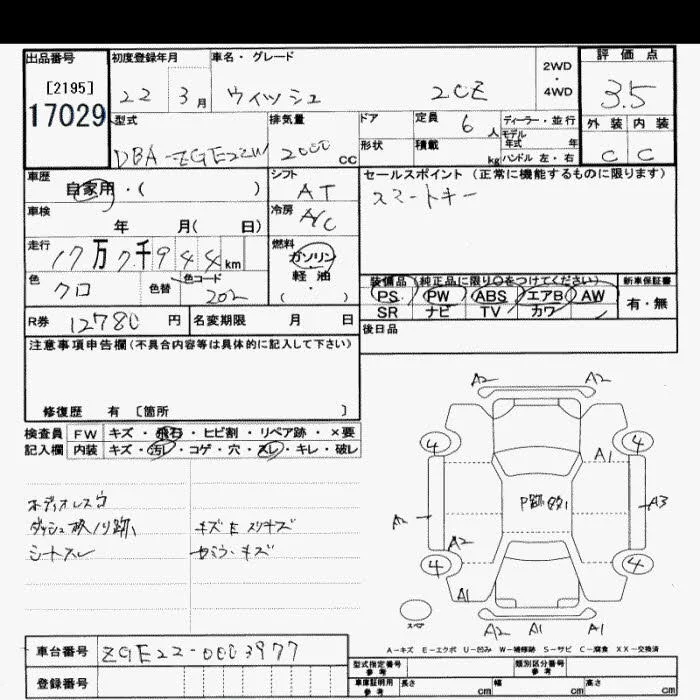 出品番号 初度登録年月 車名・グレード 2WD・4WD 評価点
[2195] 22 3月 ウィッシュ 20E 3.5
17029 型式 排気量 ドア 定員 6人 ディーラー・並行 外装 内装
モデル年式 年
DBA-ZGE22W 2000cc 形状 積載 kg ハンドル 左・右 C C
車歴 シフト セールスポイント (正常に機能するものに限ります)
自家用・( ) AT スマートキー
車検 冷房
年 月( 日) A/C
走行 燃料
17万7千944km ガソリン
軽油
( ・ )
色 色替 色コード 装備品 (純正品に限り○をつけてください) 新車保証書
クロ 202 PS PW ABS エアB AW 有・無
SR ナビ TV カワ
R券 12780円 名変期限 月 日 後日品
注意事項申告欄(不具合内容等は具体的に記入して下さい)
修復歴 有 〔箇所 〕
検査員 FW キズ・飛石・ヒビ割・リペア跡・×要
記入欄 内装 キズ・汚レ・コゲ・穴・スレ・キレ・破レ
ダッシュ
シートスレ
A2 A2
4 4
A1
A2 A3
A2
4 4
A1
スペア A2 A1 A1
A-キズ E-エクボ U-凹み W-補修跡 S-サビ C-腐食 XX-交換済
車台番号 ZGE22-0003977
型式指定番号 参考 類別区分番号 参考
登録番号 車庫証明用 参考 長さ cm 幅 cm 高さ cm